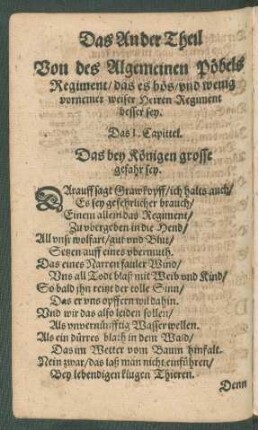 Das Ander Theil
Von des Algemeinen Pöbels
Regiment/ das es bös/ vnd wenig
vornemer weiser Herren Regiment
besser sey.
Das I. Capittel.
Das bey Königen grosse
gefahr sey.
DArauff sagt Grawkopff/ ich halts auch/
Es sey gefehrlicher brauch/
Einem allein das Regiment/
Zu vbergeben in die Hend/
All vnsr wolfart/ gut vnd Blut/
Setzen auff eines vbermuth.
Das eines Narren fauler Wind/
Vns all Todt blaß mit Weib vnd Kind/
So bald ihn reitzt der tolle Sinn/
Das er vns opffern wil dahin.
Vnd wir das also leiden sollen/
Als vnvernünfftig Wasser wellen.
Als ein dürres blath in dem Wald/
Das im Wetter vom Baum hinfalt.
Nein zwar/ das laß man nicht einführen/
Bey lebendigen klugen Thieren.
Denn